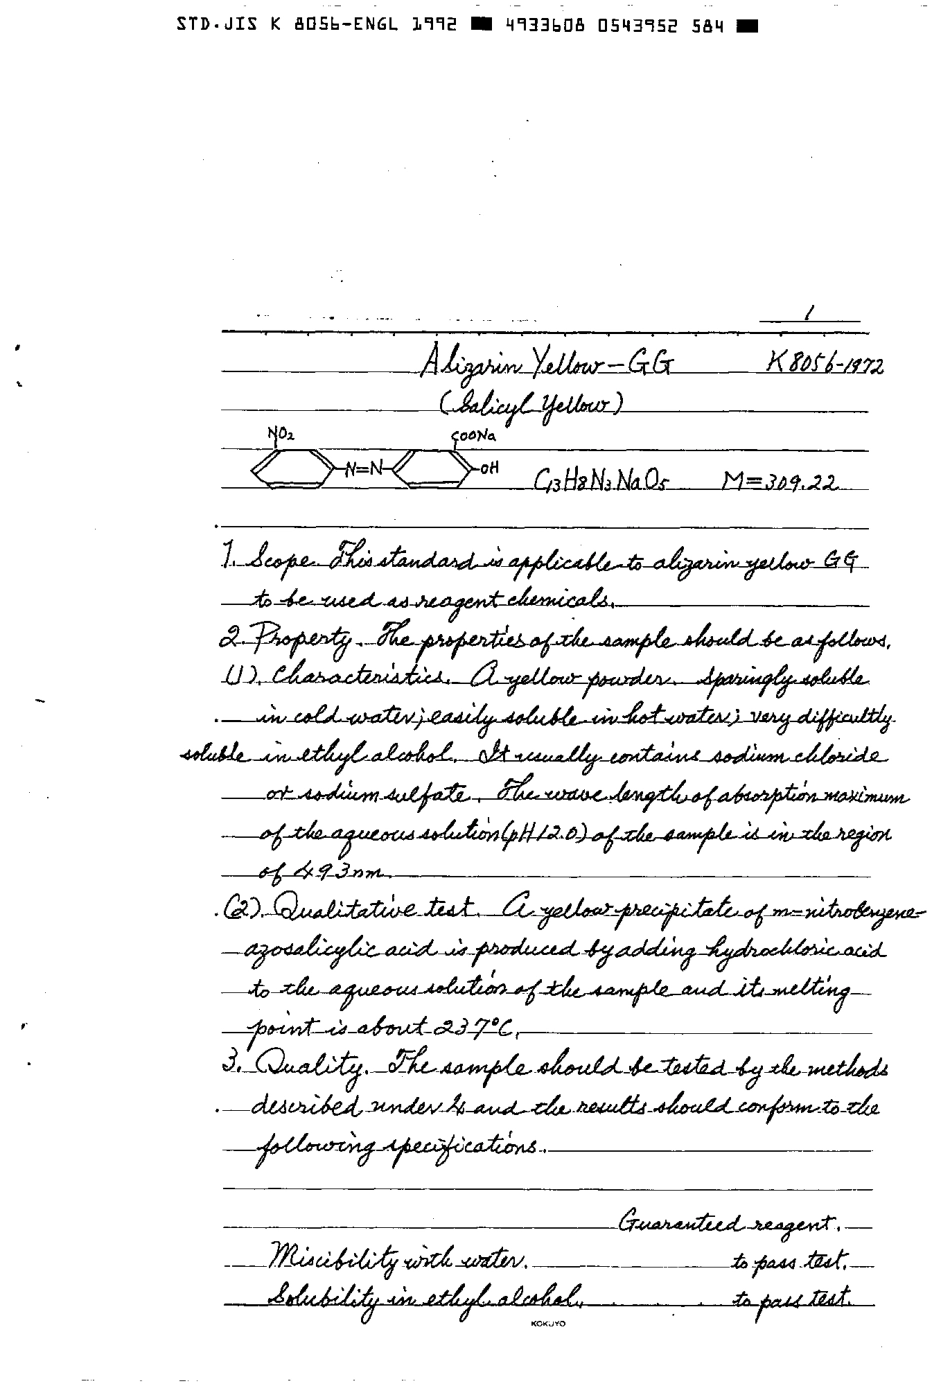 STD.JIS K 8056-ENGL 1992 ■ 4933608 0543952 584 ■
1
Alizarin Yellow-GG K8056-1972
(Salicyl Yellow)
NO2 COONa
N=N OH C13H8N3NaO5 M=309.22
1. Scope. This standard is applicable to alizarin yellow GG
to be used as reagent chemicals.
2. Property. The properties of the sample should be as follows.
(1). Characteristics. A yellow powder. Sparingly soluble
in cold water; easily soluble in hot water; very difficultly
soluble in ethyl alcohol. It usually contains sodium chloride
or sodium sulfate. The wave length of absorption maximum
of the aqueous solution (pH 12.0) of the sample is in the region
of 493nm.
(2). Qualitative test. A yellow precipitate of m-nitrobenzene-
azosalicylic acid is produced by adding hydrochloric acid
to the aqueous solution of the sample and its melting
point is about 237°C.
3. Quality. The sample should be tested by the methods
described under 4 and the results should conform to the
following specifications.
Guaranteed reagent.
Miscibility with water. to pass test.
Solubility in ethyl alcohol. to pass test.
KOKUYO